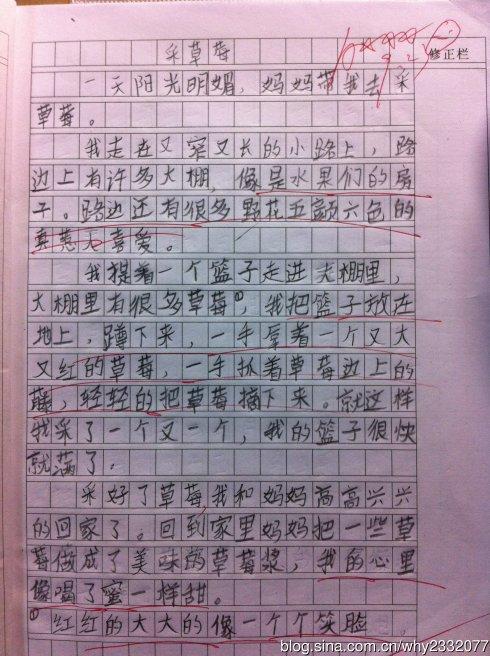 采草莓
修正栏
一天阳光明媚，妈妈带我去采
草莓。
我走在又窄又长的小路上，路
边上有许多大棚，像是水果们的房
子。路边还有很多野花五颜六色的
真惹人喜爱。
我提着一个篮子走进大棚里，
大棚里有很多草莓①，我把篮子放在
地上，蹲下来，一手拿着一个又大
又红的草莓，一手抓着草莓边上的
藤，轻轻的把草莓摘下来。就这样
我采了一个又一个，我的篮子很快
就满了．
采好了草莓，我和妈妈高高兴兴
的回家了。回到家里妈妈把一些草
莓做成了美味的草莓浆，我的心里
像喝了蜜一样甜。
①红红的大大的像一个个笑脸
blog.sina.com.cn/why2332077